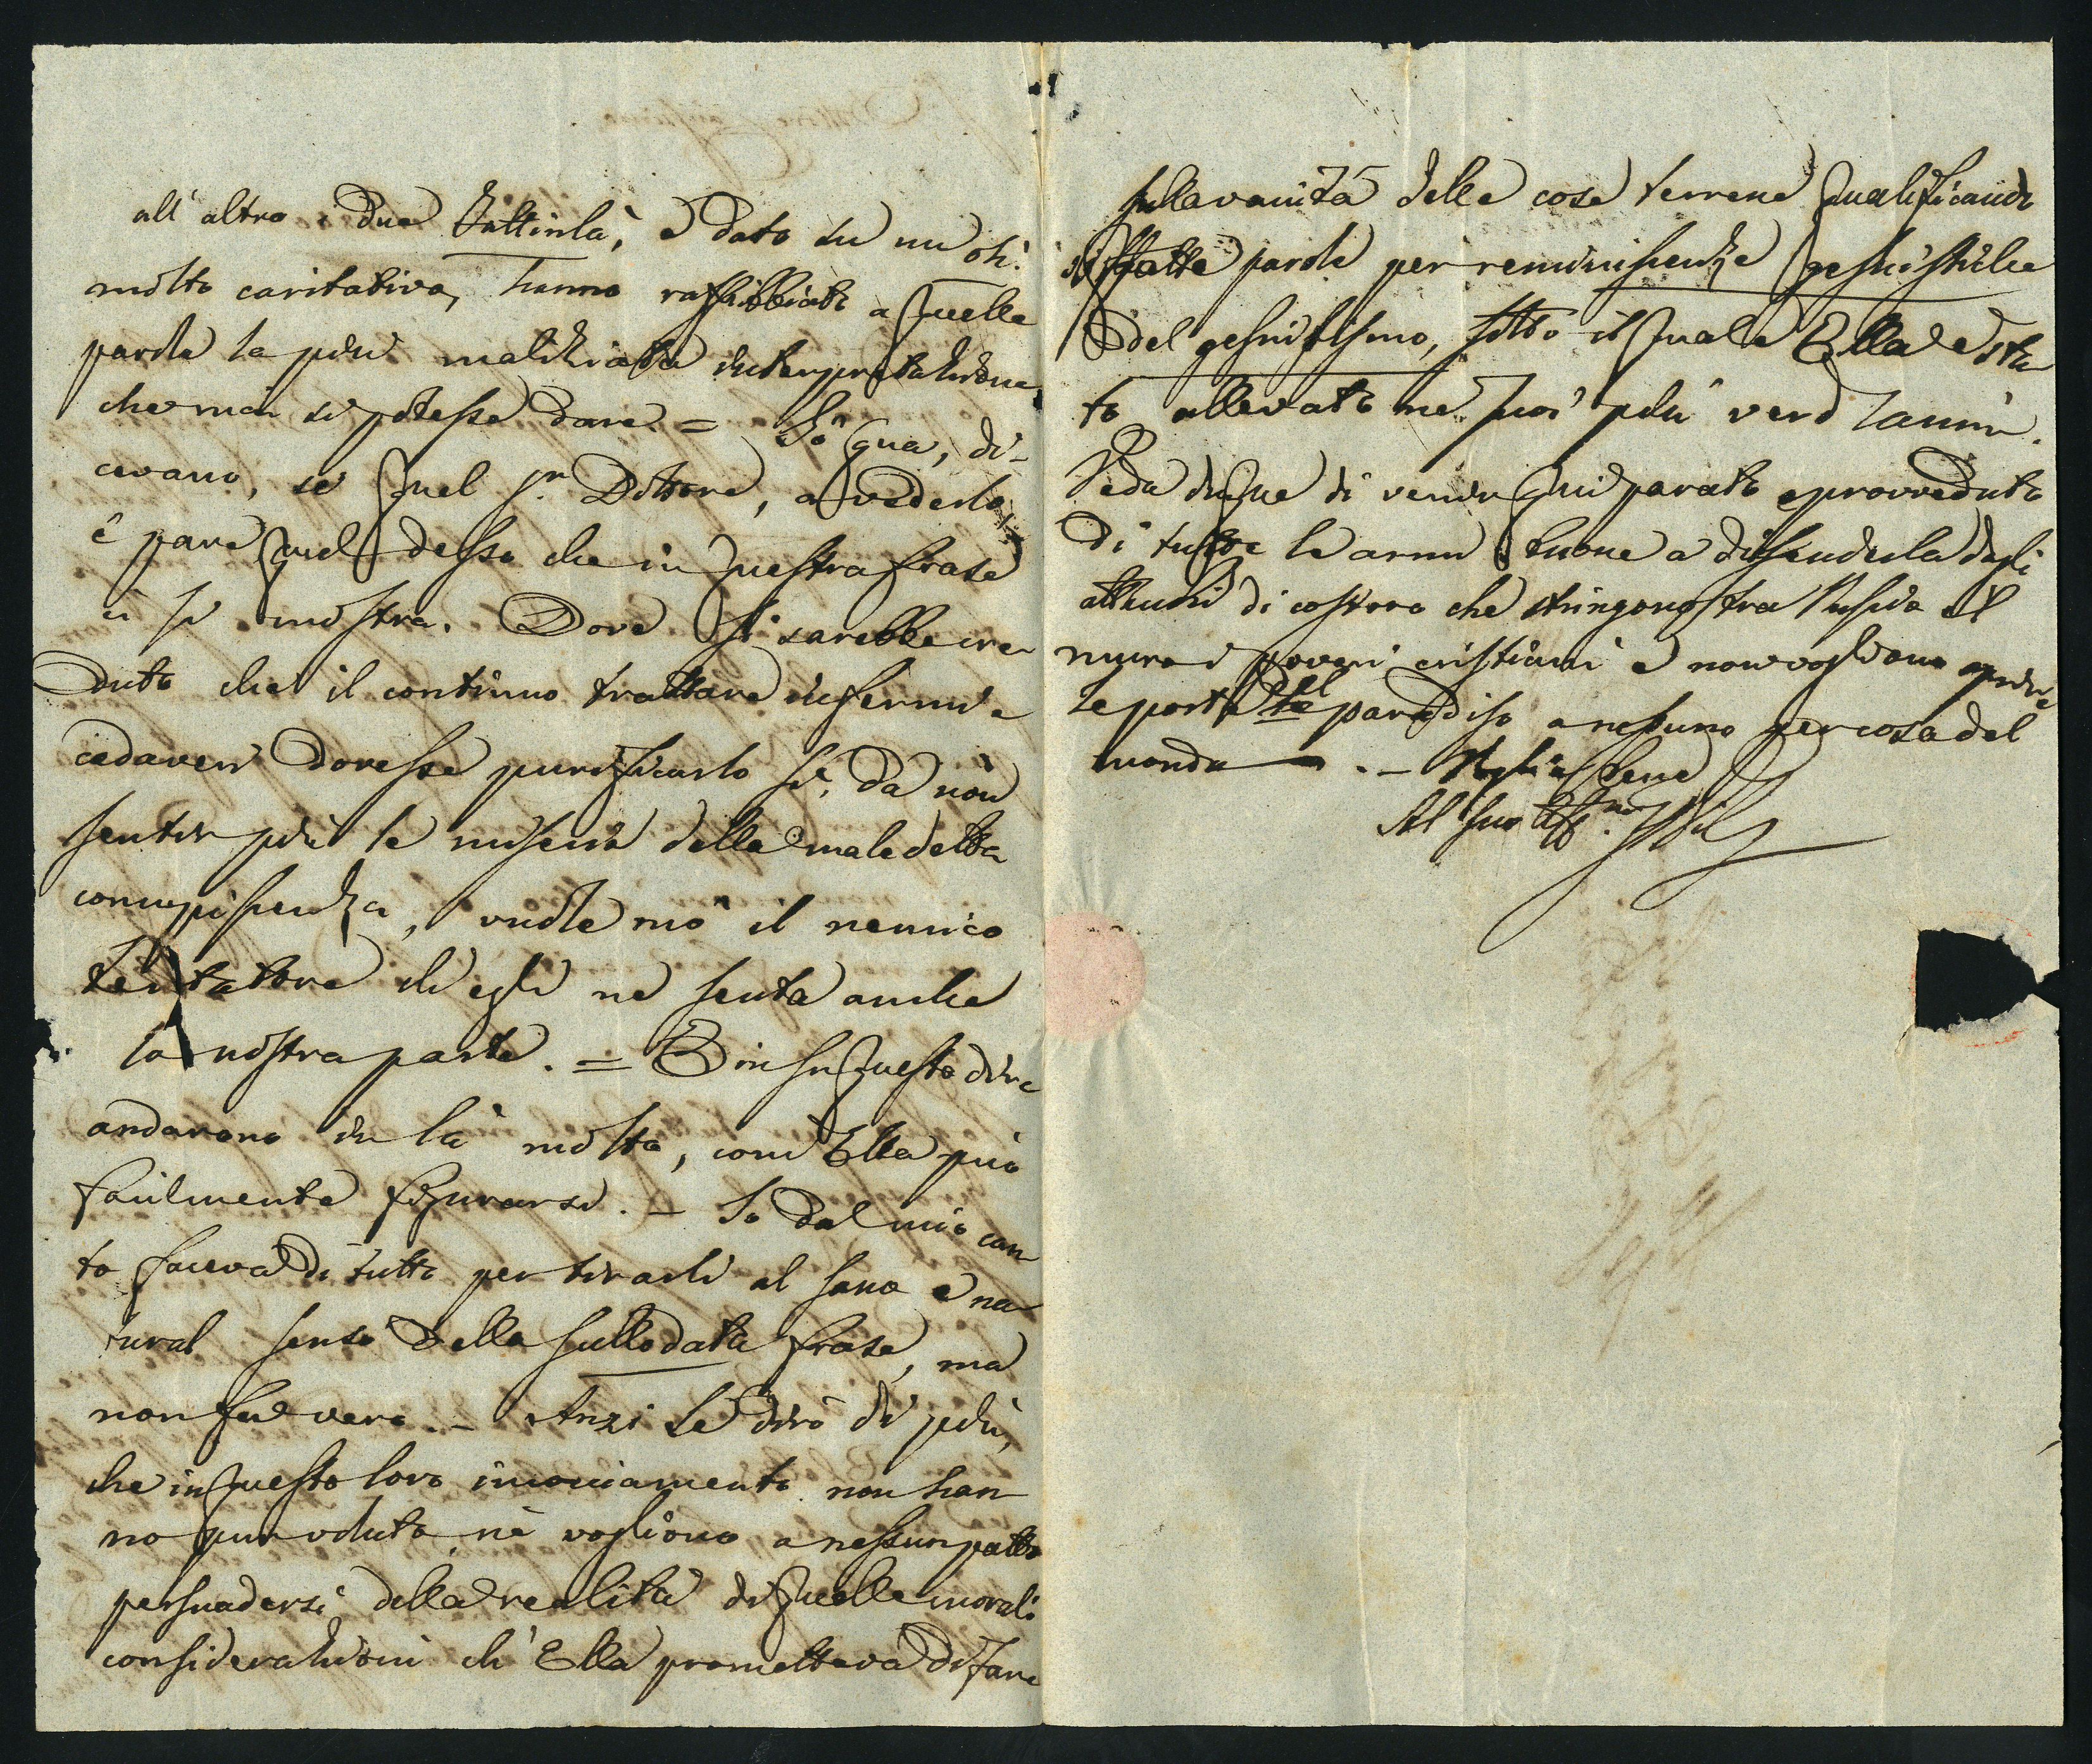 all' altro i due Zattinlà, e dato su un oh!
molto caritativo, hanno raffibbiato a quelle
parole la più maliziata interpretazione
che mai si potesse dare. = To' qua, di-
cevano, se quel Sr. Dottore, a vederlo,
e' pare quel desso che in questa frase
ci si mostra. Dove si sarebbe cre
duto che il continuo trattare infermi e
cadaveri dovesse purificarlo sì, da non
sentir più le miserie della maledetta
concupiscenza, vuole mo' il nemico
tentatore ch' egli ne senta anche
la nostra parte. = E in su questo dire
andarono in là molto, com' Ella può
facilmente figurarsi. – Io dal mio can
to faceva di tutto per tirarli al sano e na
tural senso della sullodata frase, ma
non fu vero. – Anzi Le dirò di più,
che in questo loro incocciamento non han
no pur voluto nè vogliono a nessun patto
persuadersi della realità di quelle morali
considerazioni ch' Ella prometteva di fare
sulla vanità delle cose terrene qualificando
siffatte parole per reminiscenze gesuistiche
del gesuitismo, sotto il quale Ella è sta
to allevato ne' suoi più verdi anni.
Veda dunque di venir qui parato e provveduto
di tutte le armi buone a difenderla dagli
attacchi di costoro che stringono fra l'uscio e 'l
muro i poveri cristiani e non vogliono aprire
le porte del paradiso a nessuno per cosa del
mondo — . – Voglia bene
Al suo Aff.mo